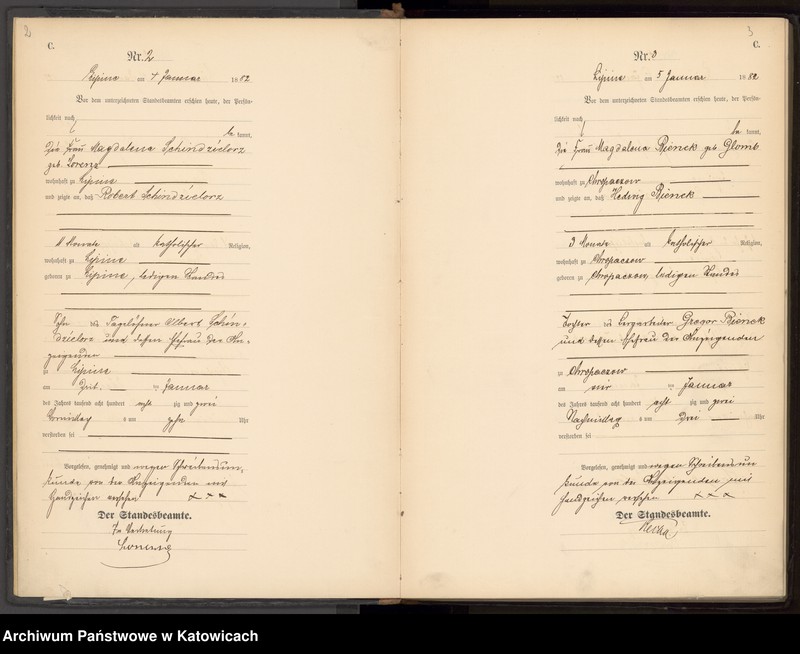 2
C.
Nr. 2
Lipine am 4 Januar 1882
Vor dem unterzeichneten Standesbeamten erschien heute, der Persön-
lichkeit nach
be kannt,
Die Frau Magdalena Schindzielorz
geb. Lorenz
wohnhaft zu Lipine
und zeigte an, daß Robert Schindzielorz
Monate alt katholischer Religion,
wohnhaft zu Lipine
geboren zu Lipine, ledigen Standes
Sohn des Tagelöhner Albert Schin-
dzielorz und dessen Ehefrau der An-
zeigenden
zu Lipine
am drit. ten Januar
des Jahres tausend acht hundert acht zig und zwei
Vormittag s um zehn Uhr
verstorben sei
Vorgelesen, genehmigt und wegen Schreibensun-
kunde von der Anzeigenden mit
Handzeichen versehen × × ×
Der Standesbeamte.
In Vertretung
3
C.
Nr. 3
Lipine am 5 Januar 1882
Vor dem unterzeichneten Standesbeamten erschien heute, der Persön-
lichkeit nach
be kannt,
Die Frau Magdalena Rienck geb. Glomb
wohnhaft zu Chropaczow
und zeigte an, daß Hedwig Rienck
3 Monate alt katholischer Religion,
wohnhaft zu Chropaczow
geboren zu Chropaczow, ledigen Standes
Tochter des Bergarbeiter Gregor Rienck
und dessen Ehefrau der Anzeigenden
zu Chropaczow
am vier ten Januar
des Jahres tausend acht hundert acht zig und zwei
Nachmittag s um drei Uhr
verstorben sei
Vorgelesen, genehmigt und wegen Schreibensun
kunde von der Anzeigenden mit
Handzeichen versehen × × ×
Der Standesbeamte.
Archiwum Państwowe w Katowicach